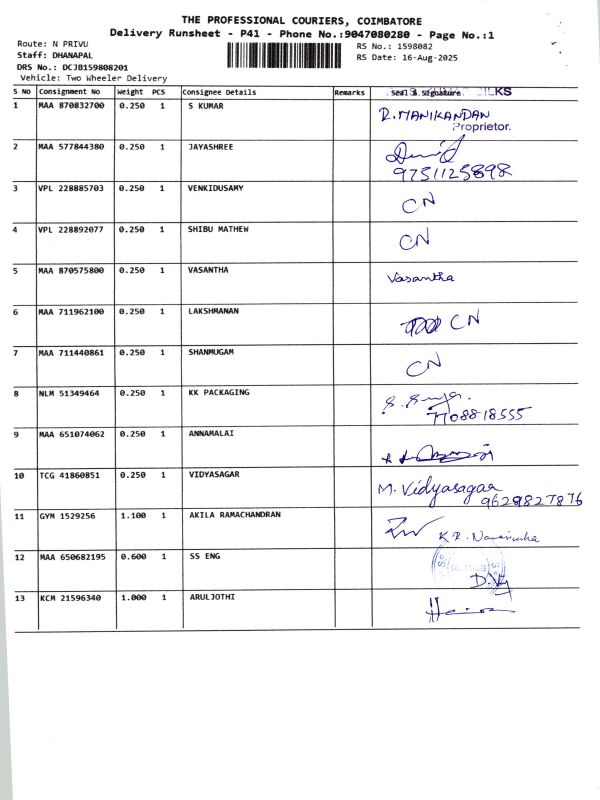 THE PROFESSIONAL COURIERS, COIMBATORE
Delivery Runsheet - P41 - Phone No.:9047080280 - Page No.:1
Route: N PRIVU
RS No.: 1598082
Staff: DHANAPAL
RS Date: 16-Aug-2025
DRS No.: DCJB159808201
Vehicle: Two Wheeler Delivery
S No Consignment No Weight PCS Consignee Details Remarks Seal & Signature
1 MAA 870832700 0.250 1 S KUMAR R.MANIKANDAN
Proprietor.
2 MAA 577844380 0.250 1 JAYASHREE
9751125898
3 VPL 228885703 0.250 1 VENKIDUSAMY CN
4 VPL 228892077 0.250 1 SHIBU MATHEW CN
5 MAA 870575800 0.250 1 VASANTHA Vasantha
6 MAA 711962100 0.250 1 LAKSHMANAN CN
7 MAA 711440861 0.250 1 SHANMUGAM CN
8 NLM 51349464 0.250 1 KK PACKAGING
7708818555
9 MAA 651074062 0.250 1 ANNAMALAI
10 TCG 41860851 0.250 1 VIDYASAGAR M. Vidyasagar
9629827876
11 GYM 1529256 1.100 1 AKILA RAMACHANDRAN
12 MAA 650682195 0.600 1 SS ENG
13 KCM 21596340 1.000 1 ARULJOTHI